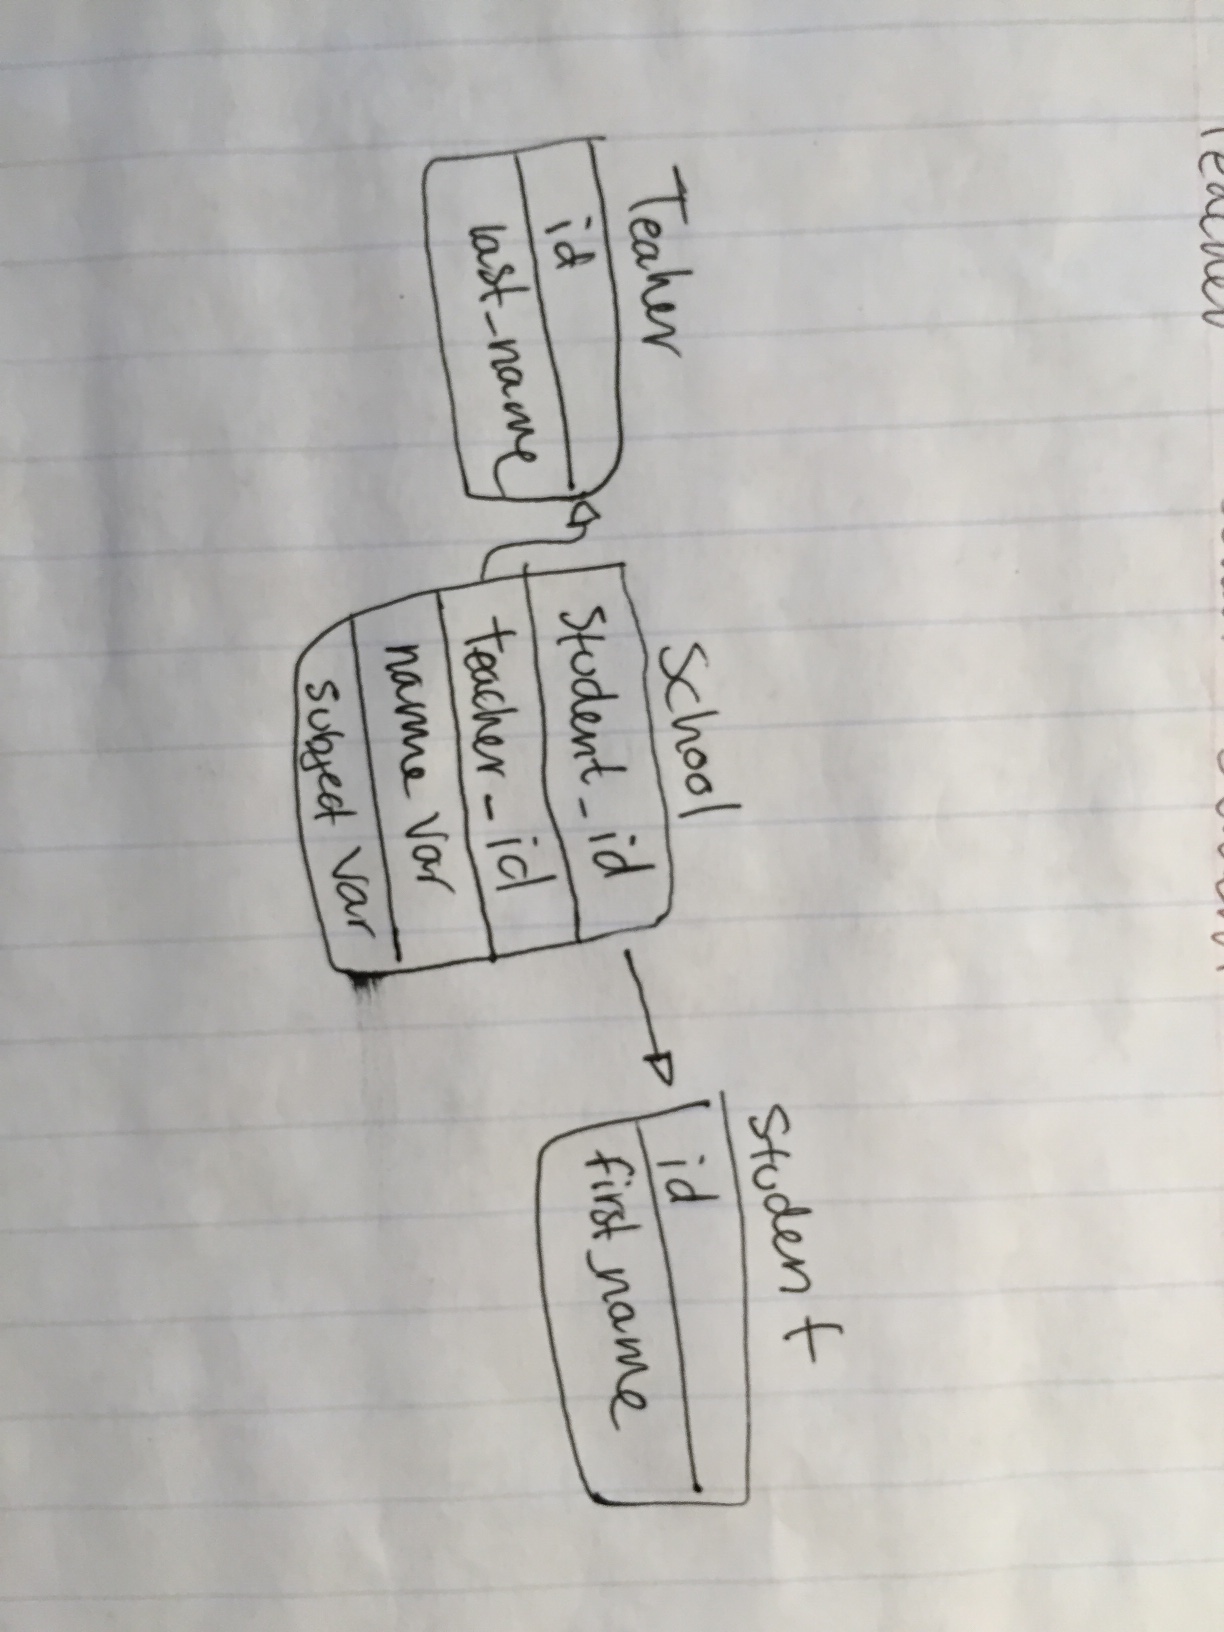 Teaher
id
last_name
School
student_id
teacher_id
name var
subject var
Student
id
first_name